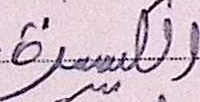 والاسرة